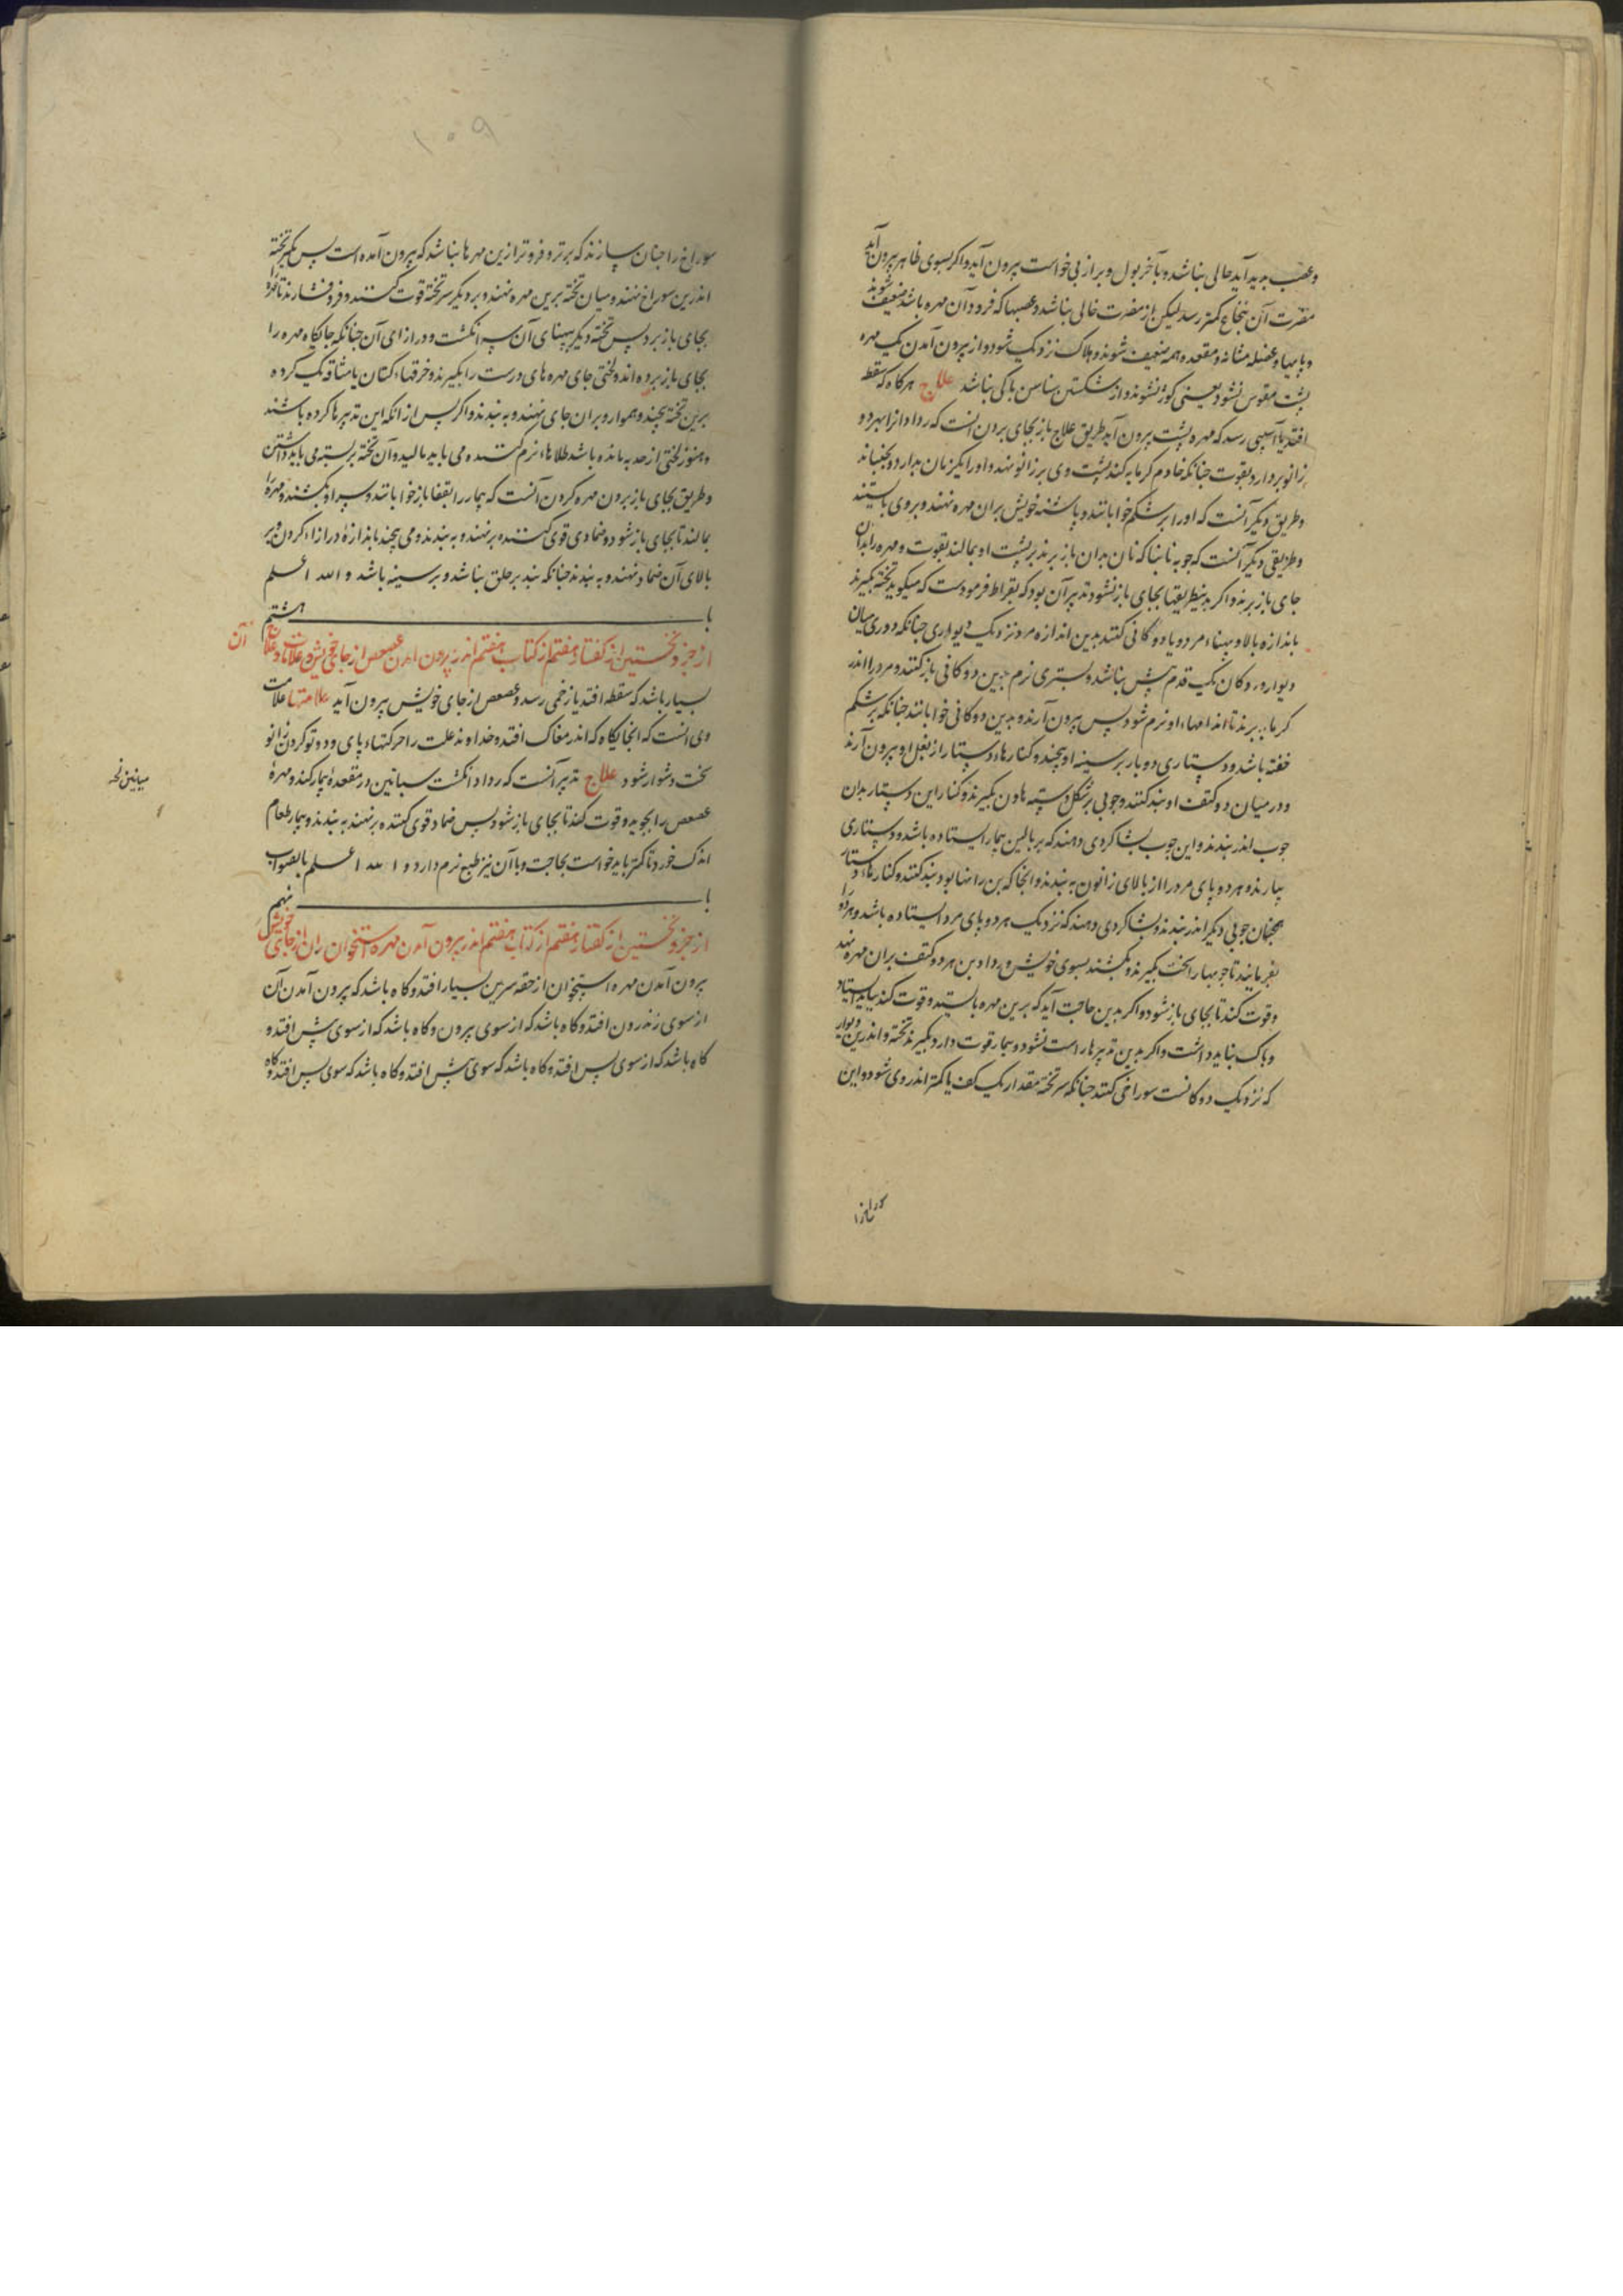 وعصب بدید آید حالی نباشد و بآخر بول و براز بی خواست بیرون آید و اگر بسوی ظاهر بیرون آید
مضرت آن بنخاع کمتر رسد لیکن از مضرت خالی نباشد و عصبها که فرود آن مهره باشد ضعیف شوند
و پایها و عضله مثانه و مقعده همه ضعیف شوند و هلاک نزدیک شود و از بیرون آمدن یک مهره
پشت مقوس نشود یعنی کوژ نشوند و از شکستن سناسن باکی نباشد علاج هرکاه که سقطه
افتد یا آسیبی رسد که مهره پشت بیرون آید طریق علاج باز بجای بردن انست که رداد انرا بهر دو
زانو بردارد بقوت جنانکه خادم کرمابه کند پشت وی بر زانو نهد و او را یکزمان بدارد و بجنباند
وطریق دیکر آنست که او را بر شکم خوابانند و پاشنه خویش بران مهره نهند و بر وی بایستند
وطریقی دیکر آنست که جوبه نانبا که نان بدان باز برند بر پشت او بمالند بقوت و مهره را بدان
جای باز برند و اکر بدینطریقها بجای باز نشود تدبیر آن بود که بقراط فرمودست که میکوید تخته بکیرند
باندازه بالا و پهناء مرد و یا دوکانی کنند بدین اندازه مرد نزدیک دیواری جنانکه دوری میان
دیوار و دوکان یک قدم بیش نباشد و بستری نرم برین دوکانی باز کنند و مرد را اندر
کرمابه برند تا اندامهاء او نرم شود پس بیرون آرند و بدین دوکانی خوابانند جنانکه بر شکم
خفته باشد و دستاری دو بار بر سینه او پیچند و کنارهاء دستار از بغل او بیرون آرند
و در میان دو کتف او بند کنند و چوبی بر شکل دسته هاون بکیرند و کنار این دستار بدان
جوب اندر بندند و این جوب بشاکردی دهند که بر بالین بیمار ایستاده باشد و دستاری
بیارند و هر دو پای مرد را از بالای زانون به بندند و انجا که بن رانها بود بند کنند و کنارهاء دستار
همچنان جوبی دیکر اندر بندند و بشاکردی دهند که نزدیک هر دو پای مرد ایستاده باشد و هر دو را
بفرمایند تا جوبها را سخت بکیرند و بکشند بسوی خویش و رداد بن هر دو کتف بران مهره نهد
وقوت کند تا بجای باز شود و اکر بدین حاجت آید که برین مهره بایستد و قوت کند بباید ایستاد
وباک نباید داشت و اکر بدین تدبیرها راست نشود و بیمار قوت دارد بکیرند تخته و اندرین دیوار
که نزدیک دوکانست سوراخی کنند جنانکه سر تخته مقدار یک کف یا کمتر اندر وی شود و این
۱۰۹
سوراخ را جنان سازند که برتر و فروتر ازین مهرها نباشد که بیرون آمده است پس یکسر تخته
اندرین سوراخ نهند و میان تخته برین مهره نهند و بر دیکر سر تخته قوت کنند و فرو فشارند تا مهره
بجای باز برد پس تخته دیکر بپهنای آن سه انکشت و درازای آن جنانکه جایکاه مهره را
بجای باز برده اند و لختی جای مهره های درست را بکیرند و خرقهاء کتان یا مشاقه تنک کرده
برین تخته پیچند و هموار و بران جای نهند و به بندند و اکر پس از انکه این تدبیرها کرده باشند
وهنوز لختی از حدبه مانده باشد طلاهاء نرم کننده می باید مالید و آن تخته بر بسته می باید داشتن
وطریق بجای باز بردن مهره کردن آنست که بیمار را بقفا باز خوابانند و سر او بکشند و مهره را
بمالند تا بجای باز شود و ضمادی قوی کننده بر نهند و به بندند و می پیچند باندازه درازاء کردن و بر
بالای آن ضماد نهند و به بندند جنانکه بند بر حلق نباشد و بر سینه باشد و الله اعلم
باب هشتم
از جزو نخستین از کفتار هفتم از کتاب هفتم اندر بیرون امدن عصعص از جای خویش و علامات و علاج آن
بسیار باشد که سقطه افتد یا زخمی رسد و عصعص از جای خویش بیرون آید علامتها علامت
وی انست که انجایکاه که اندر مغاک افتد و خداوند علت را حرکتهاء پای و دوتو کردن زانو
سخت دشوار شود علاج تدبیر آنست که رداد انکشت سبانین در مقعده بیمار کند و مهره
عصعص را بجوید و قوت کند تا بجای باز شود پس ضماد قوی کننده بر نهند به بندند و بیمار طعام
اندک خورد تا کمتر باید خواست بحاجت و با آن نیز طبع نرم دارد و الله اعلم بالصواب
باب نهم
از جزو نخستین از کفتار هفتم از کتاب هفتم اندر بیرون آمدن مهره استخوان ران از جای خویش
بیرون آمدن مهره استخوان از حقه سرین بسیار افتد و کاه باشد که بیرون آمدن آن
از سوی زندرون افتد و کاه باشد که از سوی بیرون و کاه باشد که از سوی پیش افتد و
کاه باشد که از سوی پس افتد و کاه باشد که سوی پیش افتد و کاه باشد که سوی پس افتد و کاه